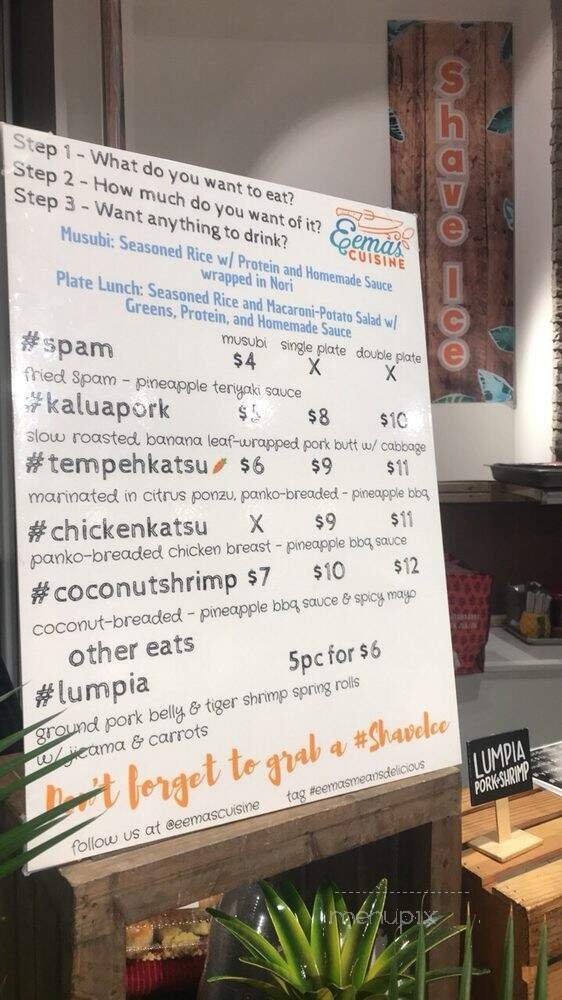 Step 1 - What do you want to eat?
Step 2 - How much do you want of it?
Step 3 - Want anything to drink?
Eemas
CUISINE
Musubi: Seasoned Rice w/ Protein and Homemade Sauce
wrapped in Nori
Plate Lunch: Seasoned Rice and Macaroni-Potato Salad w/
Greens, Protein, and Homemade Sauce
musubi single plate double plate
#spam $4 X X
fried Spam - pineapple teriyaki sauce
#kaluapork $5 $8 $10
slow roasted banana leaf-wrapped pork butt w/ cabbage
#tempehkatsu $6 $9 $11
marinated in citrus ponzu, panko-breaded - pineapple bbq
#chickenkatsu X $9 $11
panko-breaded chicken breast - pineapple bbq sauce
#coconutshrimp $7 $10 $12
coconut-breaded - pineapple bbq sauce & spicy mayo
other eats
#lumpia 5pc for $6
ground pork belly & tiger shrimp spring rolls
w/ jicama & carrots
Don't forget to grab a #ShaveIce
follow us at @eemascuisine tag #eemasmeansdelicious
Shave Ice
LUMPIA
PORK+SHRIMP
menupix